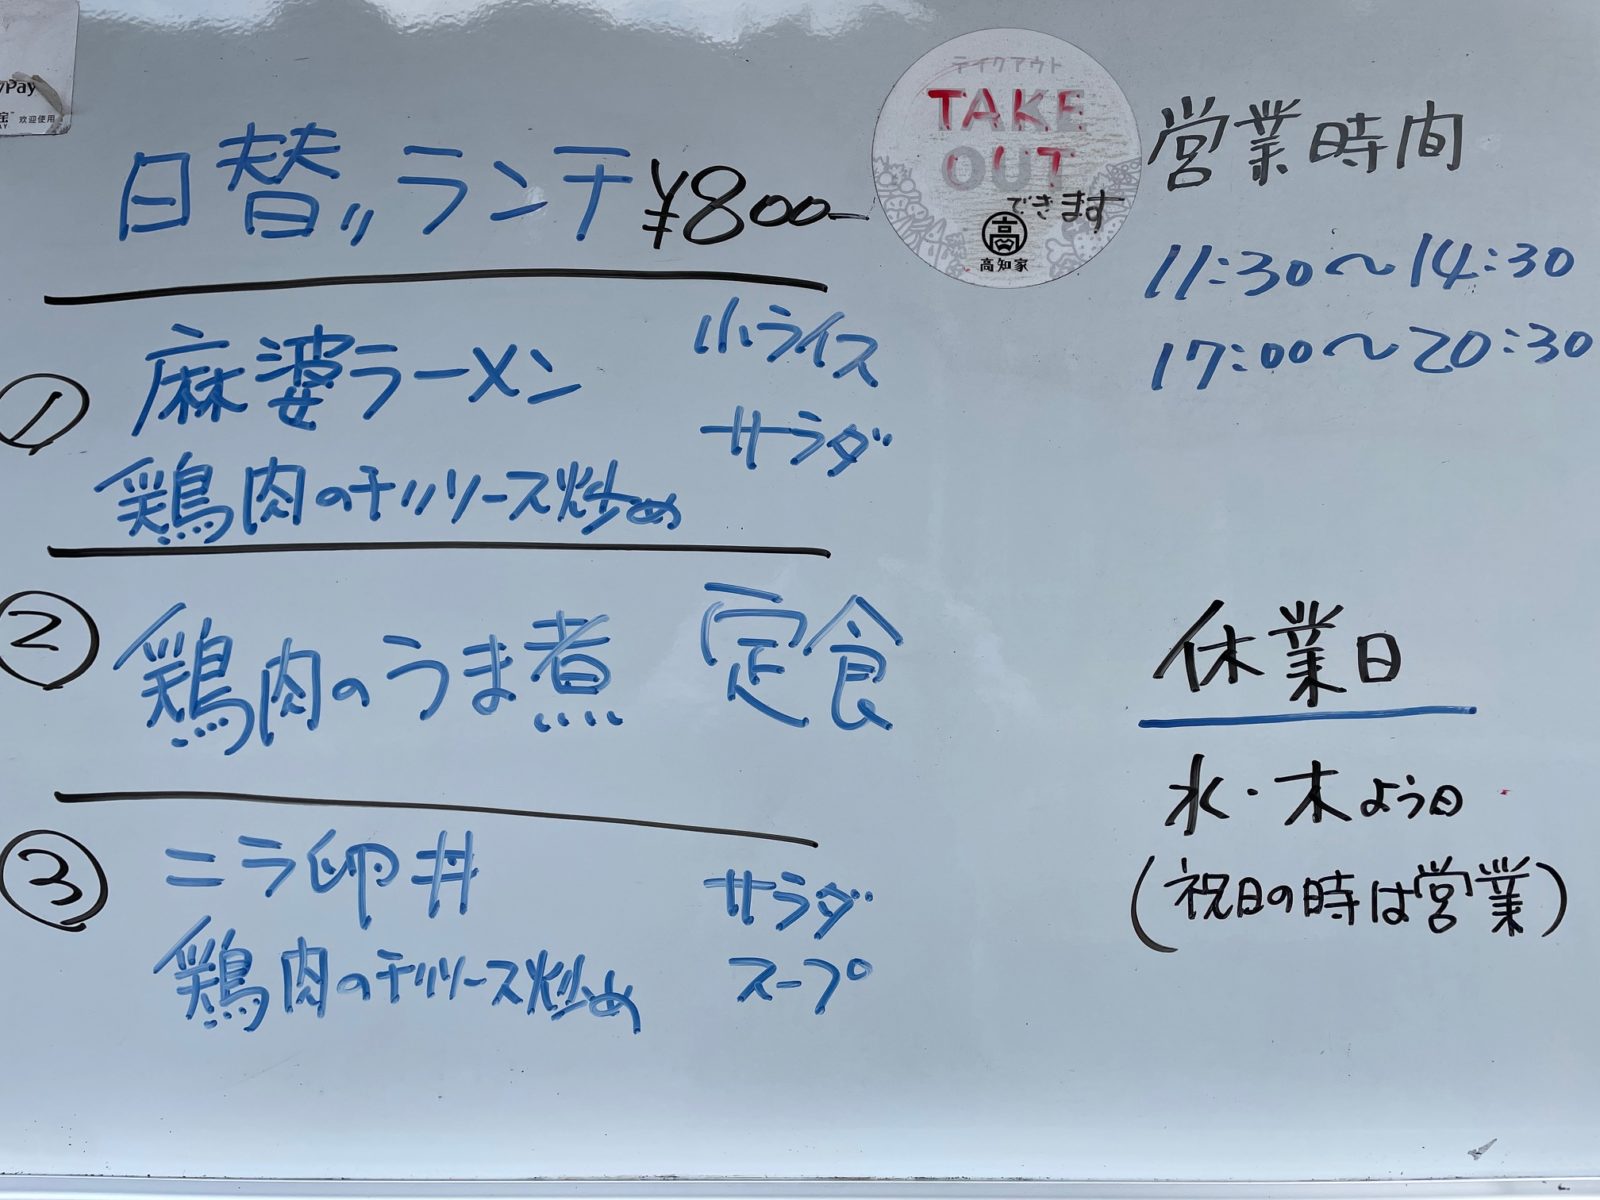 Pay
欢迎使用
日替りランチ ¥800-
① 麻婆ラーメン 小ライス
サラダ
鶏肉のチリソース炒め
② 鶏肉のうま煮 定食
③ ニラ卵丼 サラダ
鶏肉のチリソース炒め スープ
テイクアウト
TAKE
OUT
できます
高
高知家
営業時間
11:30〜14:30
17:00〜20:30
休業日
水・木よう日
(祝日の時は営業)